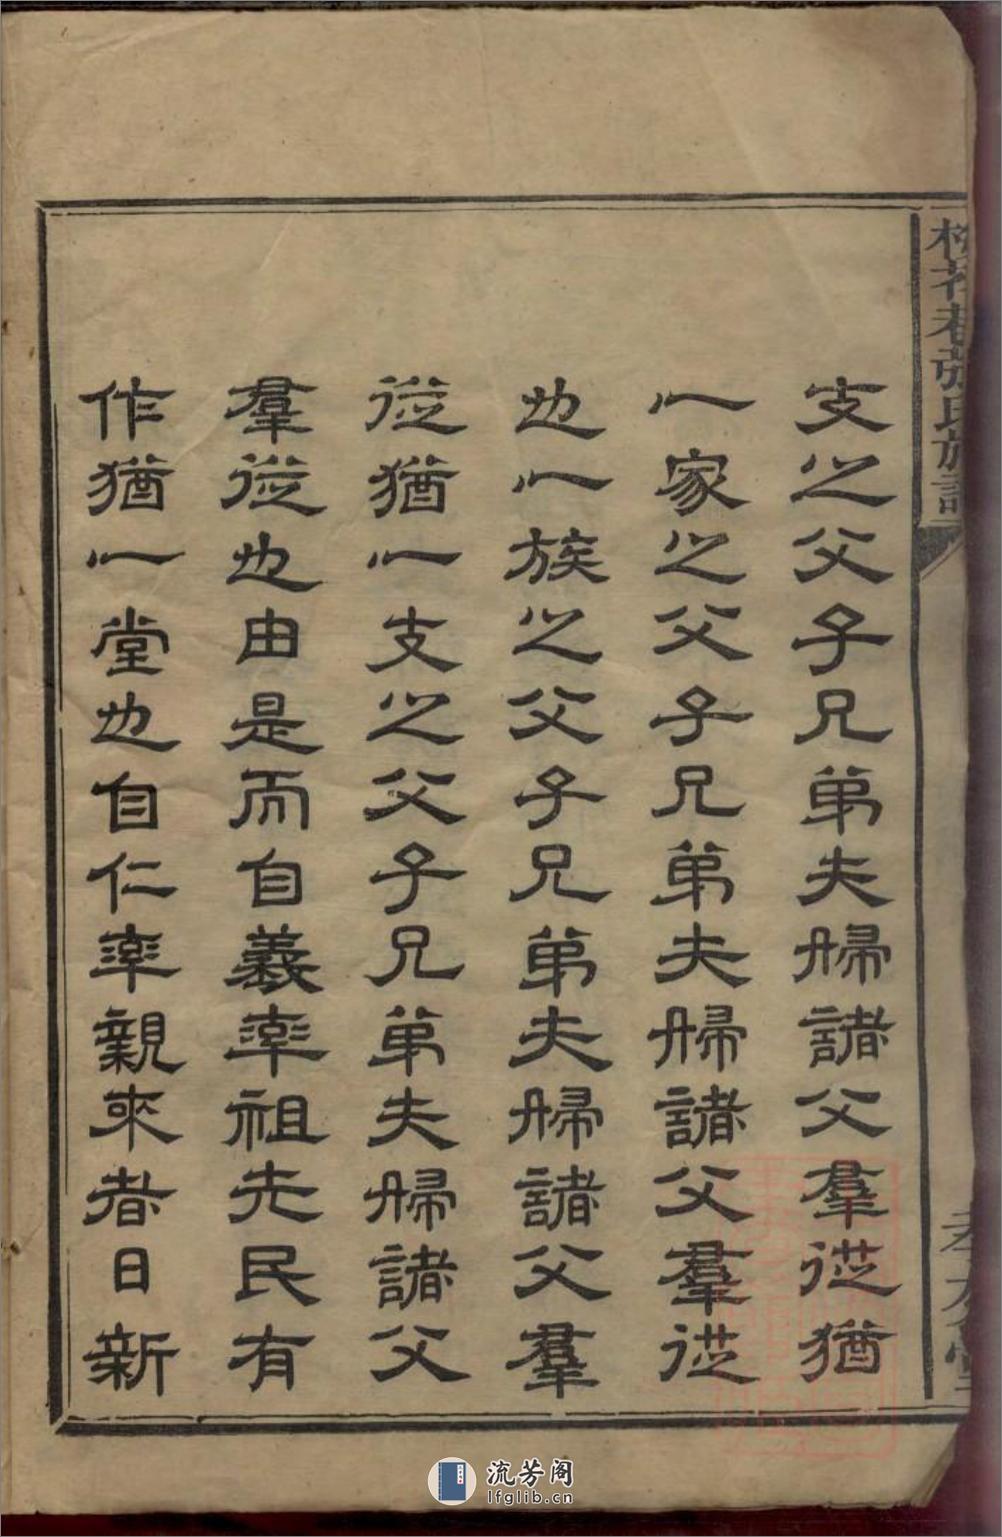 支之父子兄弟夫婦諸父羣從猶
一家之父子兄弟夫婦諸父羣從
也一族之父子兄弟夫婦諸父羣
從猶一支之父子兄弟夫婦諸父
羣從也由是而自義率祖先民有
作猶一堂也自仁率親來者日新
巷張氏族譜
孝友堂
流芳阁
lfglib.cn